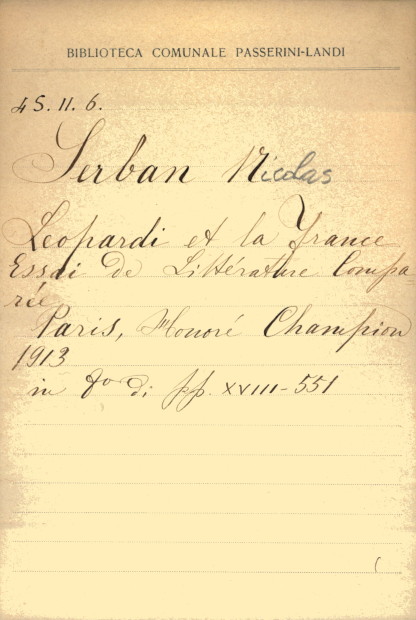 BIBLIOTECA COMUNALE PASSERINI-LANDI
45. 11. 6.
Serban Nicolas
Leopardi et la France
Essai de Littérature Compa-
rée
Paris, Honoré Champion
1913
in 8º di pp. XVIII-551